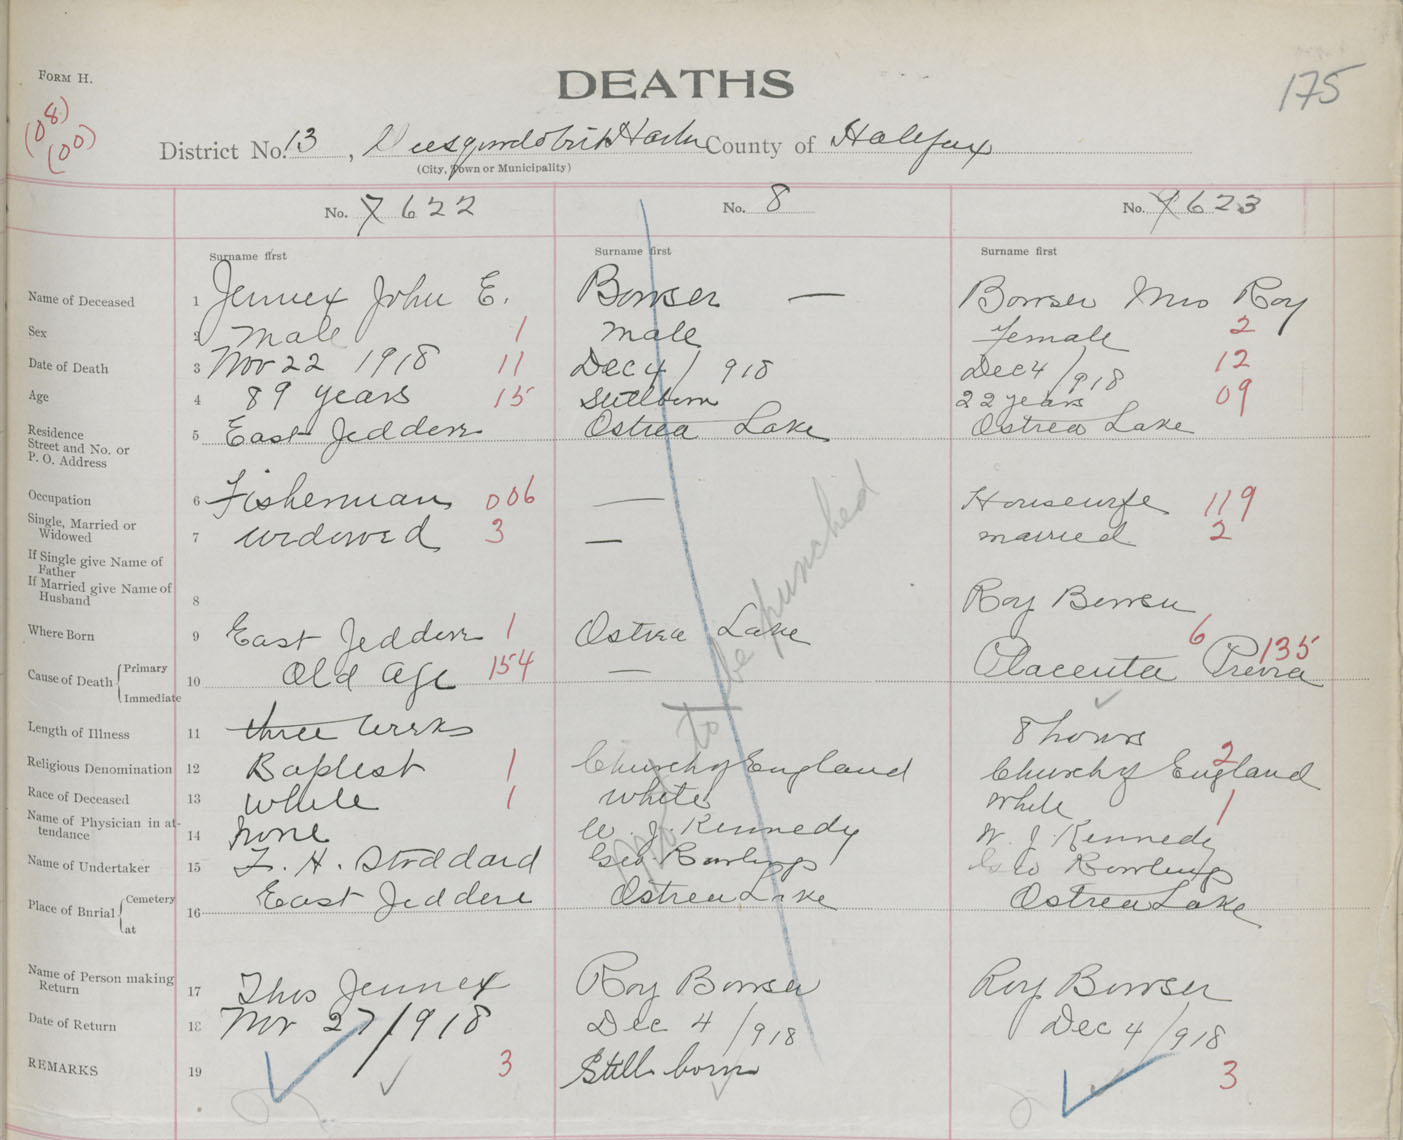 FORM H.
DEATHS
175
(08)
(00)
District No. 13, Musquodoboit Harbor County of Halifax
(City, Town or Municipality)
No. 7 622 No. 8 No. 623
Surname first Surname first Surname first
Name of Deceased 1 Jennex John E. Bowser — Bowser Mrs Roy
Sex 2 Male 1 Male Female 2
Date of Death 3 Nov 22 1918 11 Dec 4/918 Dec 4/918 12
Age 4 89 years 15 Stillborn 22 years 09
Residence Street and No. or P. O. Address 5 East Jeddore Ostrea Lake Ostrea Lake
Occupation 6 Fisherman 006 — Housewife 119
Single, Married or Widowed 7 widowed 3 — married 2
If Single give Name of Father
If Married give Name of Husband 8 Roy Bowser
Where Born 9 East Jeddore 1 Ostrea Lake 6
Cause of Death { Primary Immediate 10 Old Age 154 — Placenta Previa 135
Length of Illness 11 three weeks 8 hours
Religious Denomination 12 Baptist 1 Church of England Church of England 2
Race of Deceased 13 White 1 White White 1
Name of Physician in attendance 14 None W. J. Kennedy W. J. Kennedy
Name of Undertaker 15 F. H. Stoddard Geo Rowlings Geo Rowlings
Place of Burial { Cemetery at 16 East Jeddore Ostrea Lake Ostrea Lake
Name of Person making Return 17 Thos Jennex Roy Bowser Roy Bowser
Date of Return 18 Nov 27/1918 Dec 4/918 Dec 4/918
REMARKS 19 3 Still born 3
Not to be punched